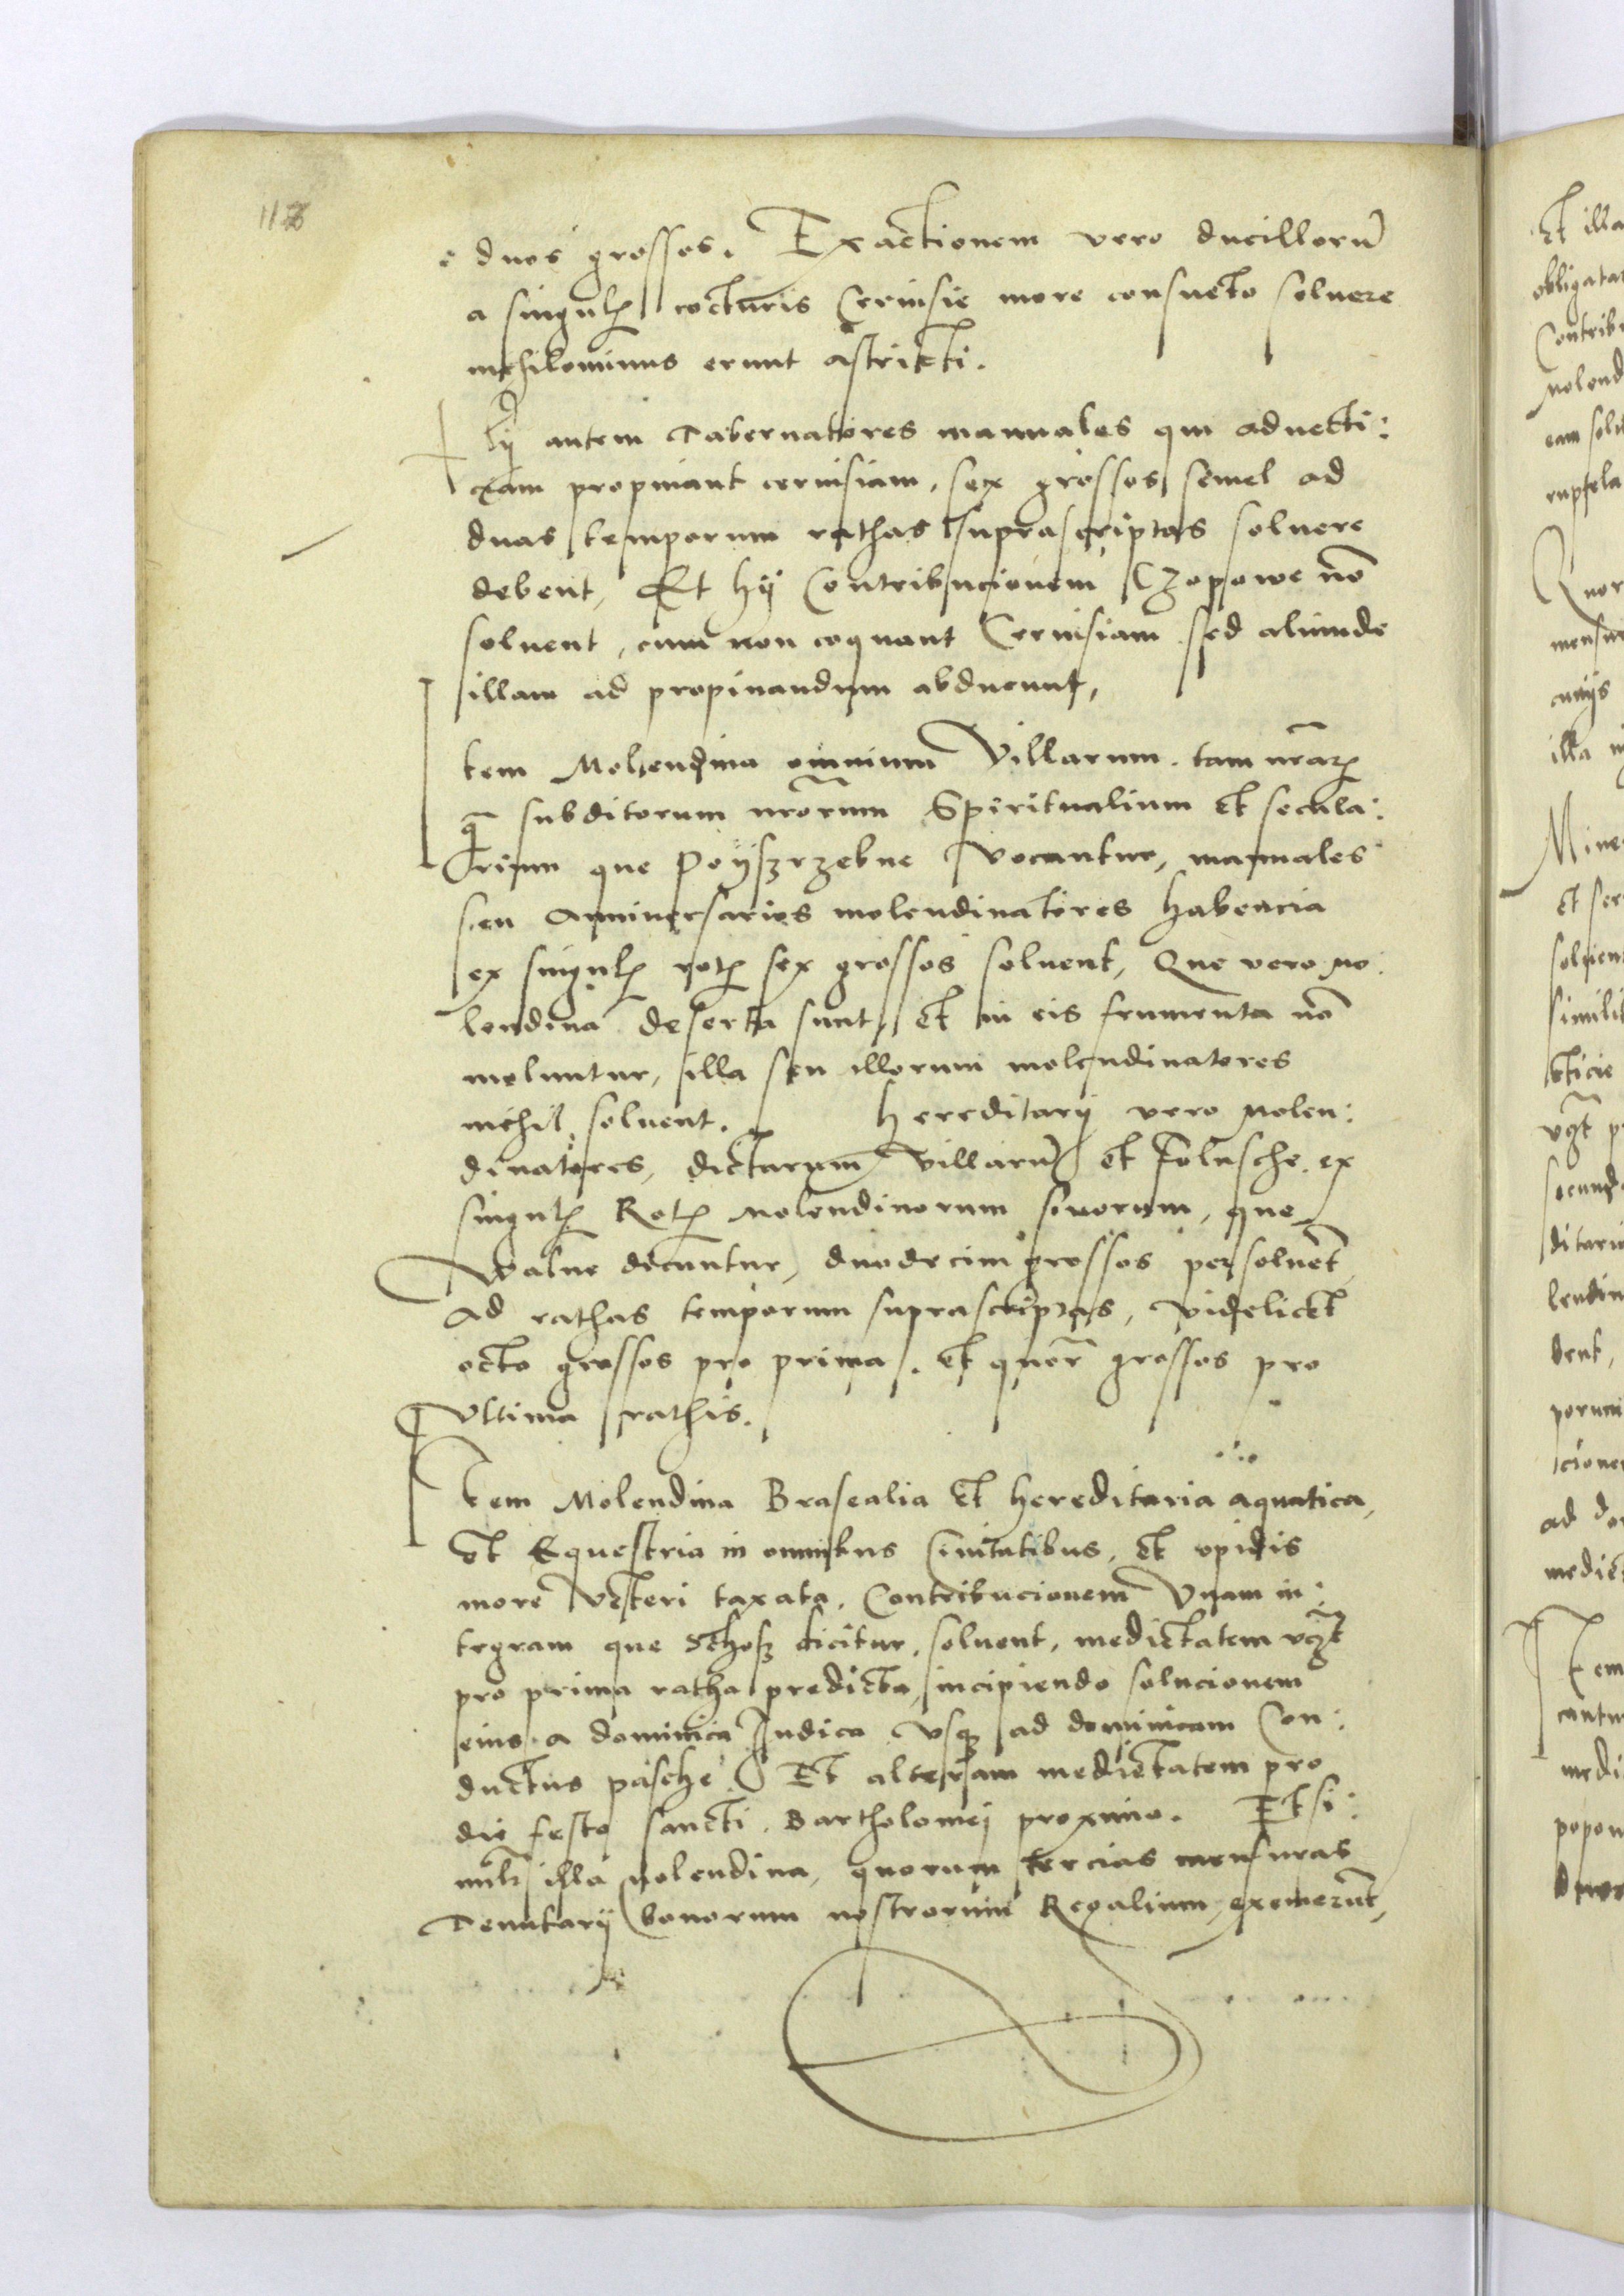 118
duos grossos. Exactionem vero ducillorū
a singulꝭ cocturis Cervisie more consueto soluere
nichilominus erunt astricti.
Hij autem Tabernatores manuales qui aduecti:
ciam propinant ceruisiam, sex grossos semel ad
duas temporum rathas suprascriptas soluere
debent, Et hij Contribucionem Czopowe nō
soluent, cum non coquant Ceruisiam sed aliunde
illam ad propinandum abducunt,
Item Molendina omnium Villarum. tam nr̄arꝭ
q̄ subditorum nr̄orum Spiritualium et secula:
rium que Poyszrzebne vocantur, manuales
seu Anniversarios molendinatores habencia
ex singulꝭ rotꝭ sex grossos soluent, Que vero mo:
lendina deserta sunt, et in eis frumenta nō
moluntur, illa seu illorum molendinatores
nichil soluent. Hereditarij vero Molen:
dinatores, dictarum villarū et Folusche. ex
singulꝭ Rotꝭ Molendinorum suorum, que
Walne dicuntur, duodecim grossos persoluēt
Ad rathas temporum suprascriptas, videlicet
octo grossos pro prima. et quor̄ grossos pro
vltima rathis.
Item Molendina Brasealia et hereditaria aquatica,
et Equestria in omnibus Ciuitatibus, et opidis
more veteri taxata. Contribucionem Vnam in:
tegram que Schosz dicitur, soluent, medietatem vcꝫt
pro prima ratha predicta, incipiendo solucionem
eius a dominica Iudica vsqꝫ ad dominicam Con:
ductus pasche. Et alteram medietatem pro
die festo sancti Bartholomej proximo. Et si:
milr̄ illa molendina, quorum tercias mensuras
Tenutarij bonorum nostrorum Regalium exemerūt,